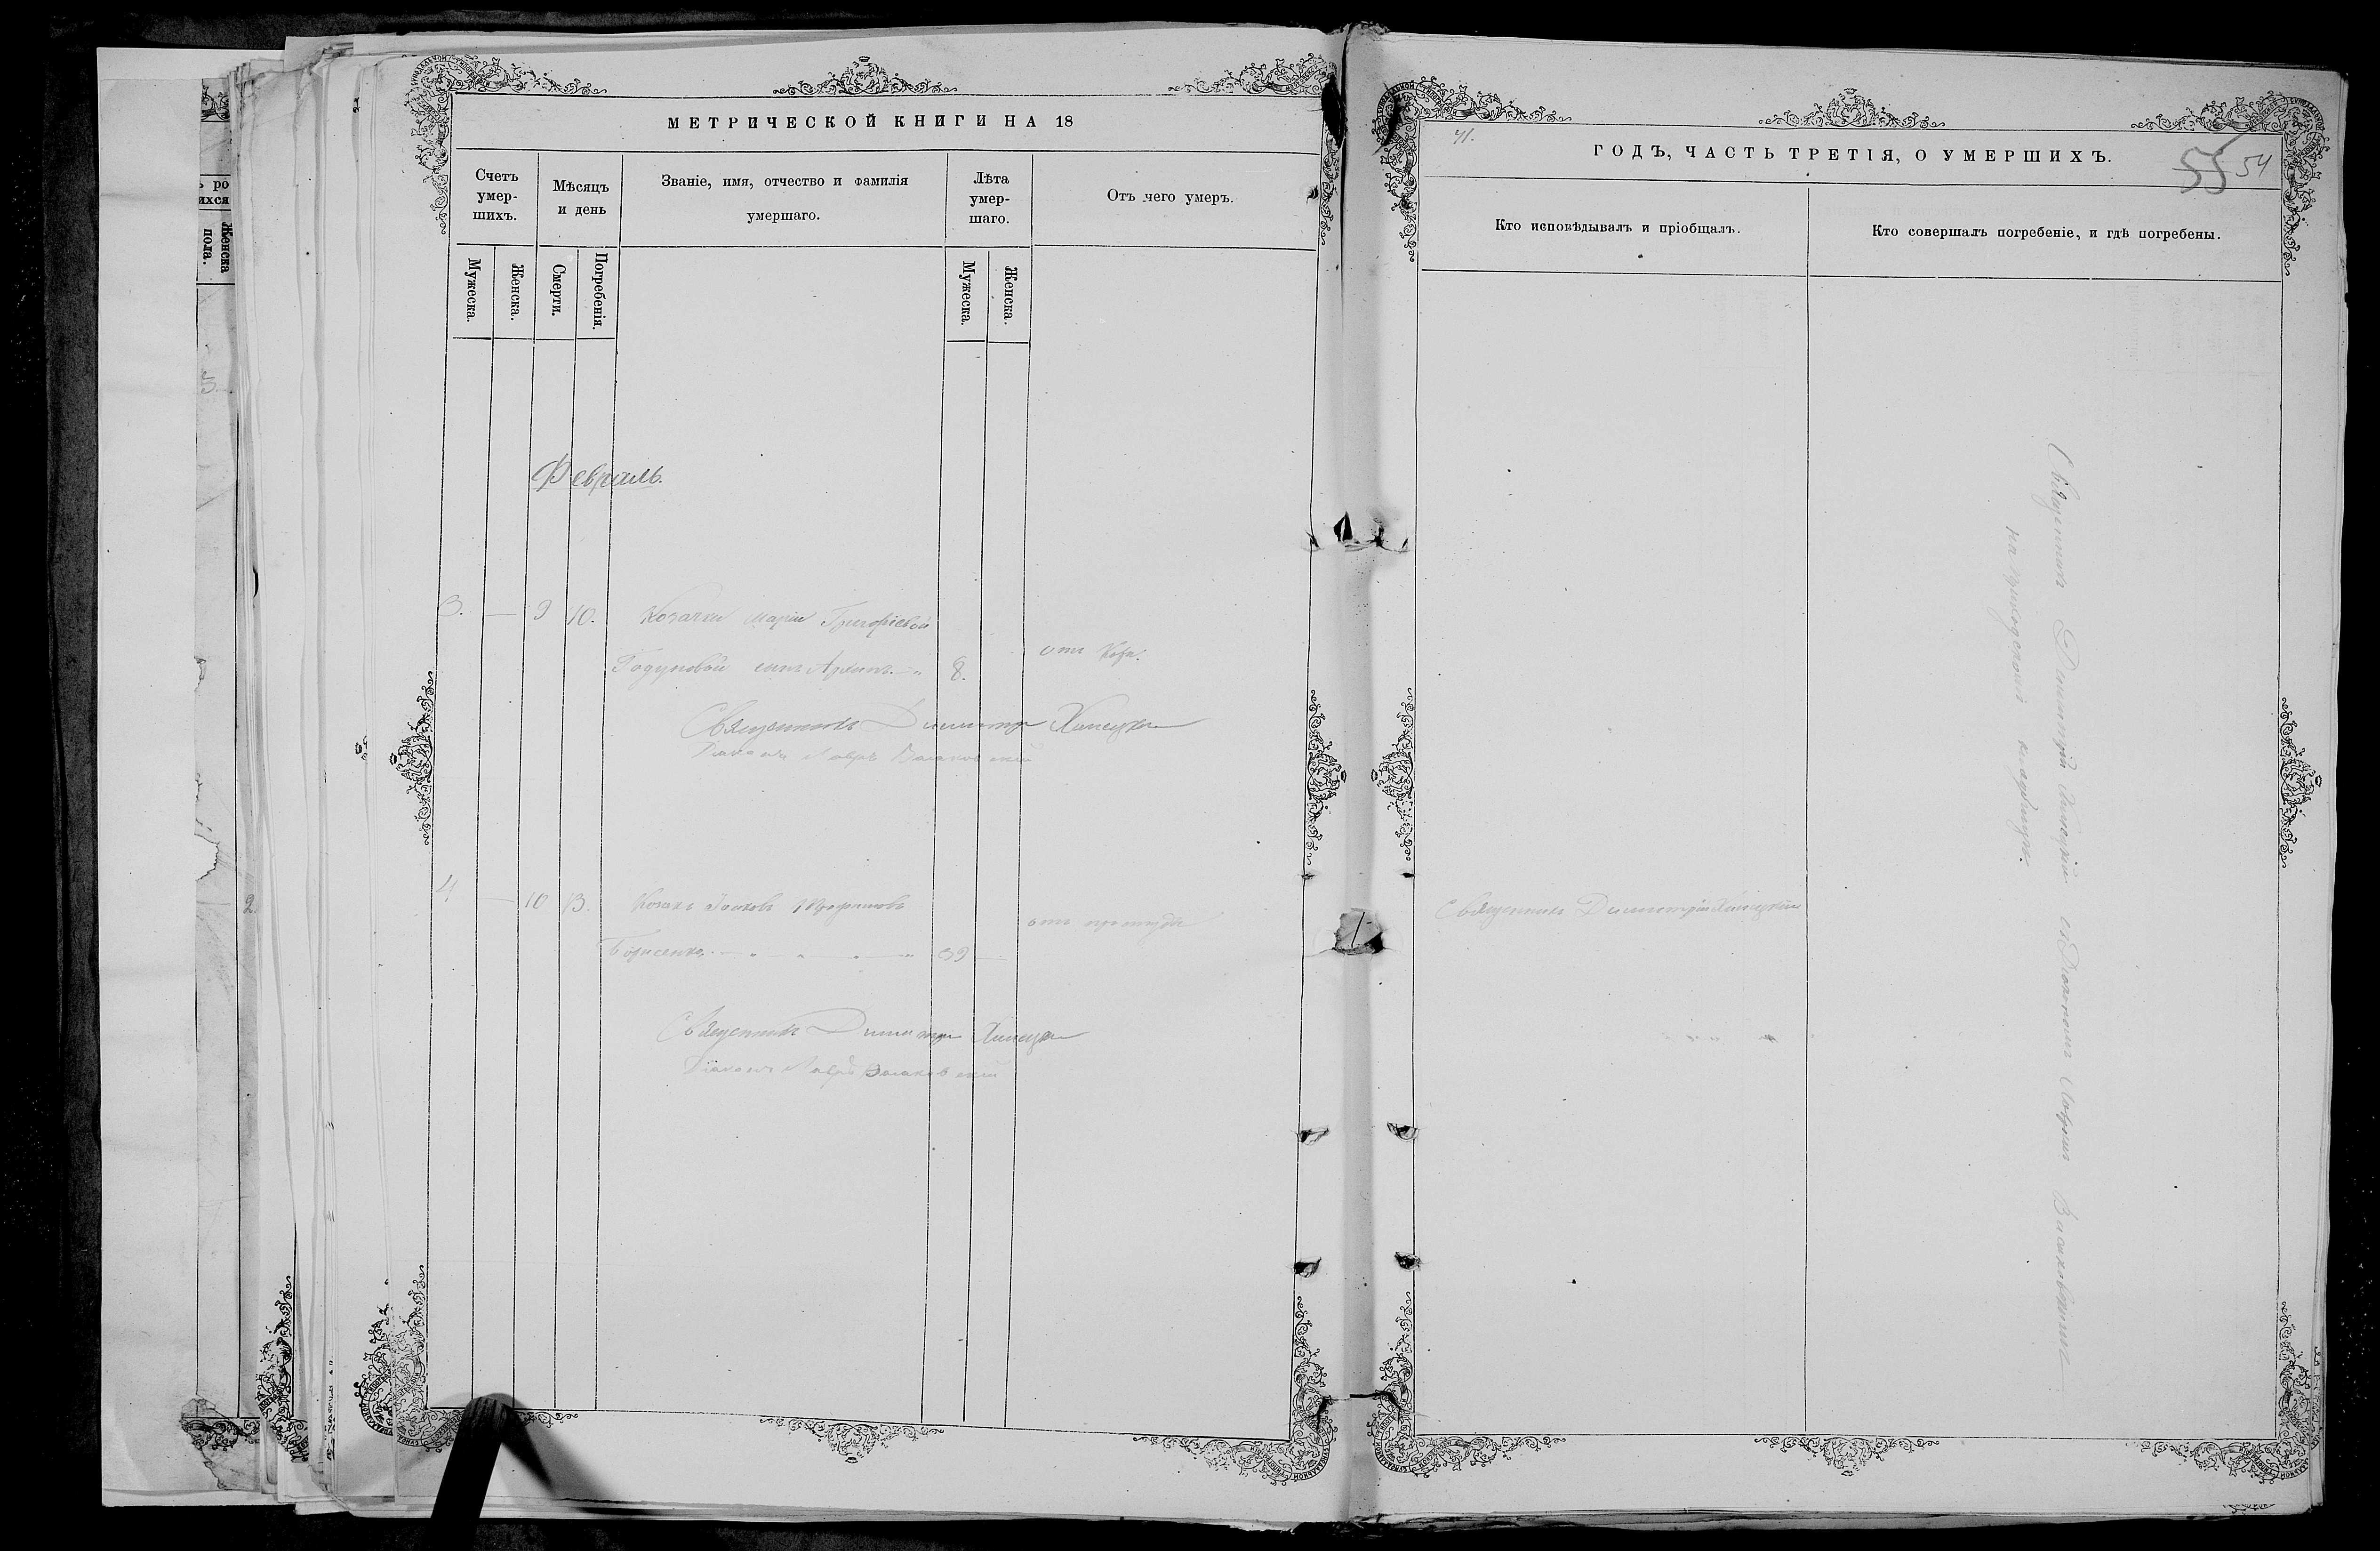 МЕТРИЧЕСКОЙ КНИГИ НА 18
Счетъ умер-шихъ.
Мѣсяцъ и день
Званіе, имя, отчество и фамилія умершаго.
Лѣта умер-шаго.
Отъ чего умеръ.
Мужеска.
Женска.
Смерти.
Погребенія.
Мужеска.
Женска.
Февраль.
3. — 9 10. Козачки Маріи Григоріевой
Годуновой сынъ Архипъ 8. отъ кори.
Священникъ Димитрій
Діаконъ Лавръ
4 — 10 13. Козакъ Іаковъ
Борисенко 39 — отъ простуды
Священникъ Димитрій
Діаконъ Лавръ
41.
ГОДЪ, ЧАСТЬ ТРЕТІЯ, О УМЕРШИХЪ.
55 54
Кто исповѣдывалъ и пріобщалъ.
Кто совершалъ погребеніе, и гдѣ погребены.
Священникъ Димитрій
Священникъ Димитрій съ Діакономъ Лавромъ
на приходскомъ кладбищѣ.
ро
ихся
Женска
пола.
5
2.